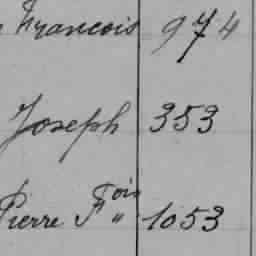 Francois 974
Joseph 353
Pierre Fois " 1053